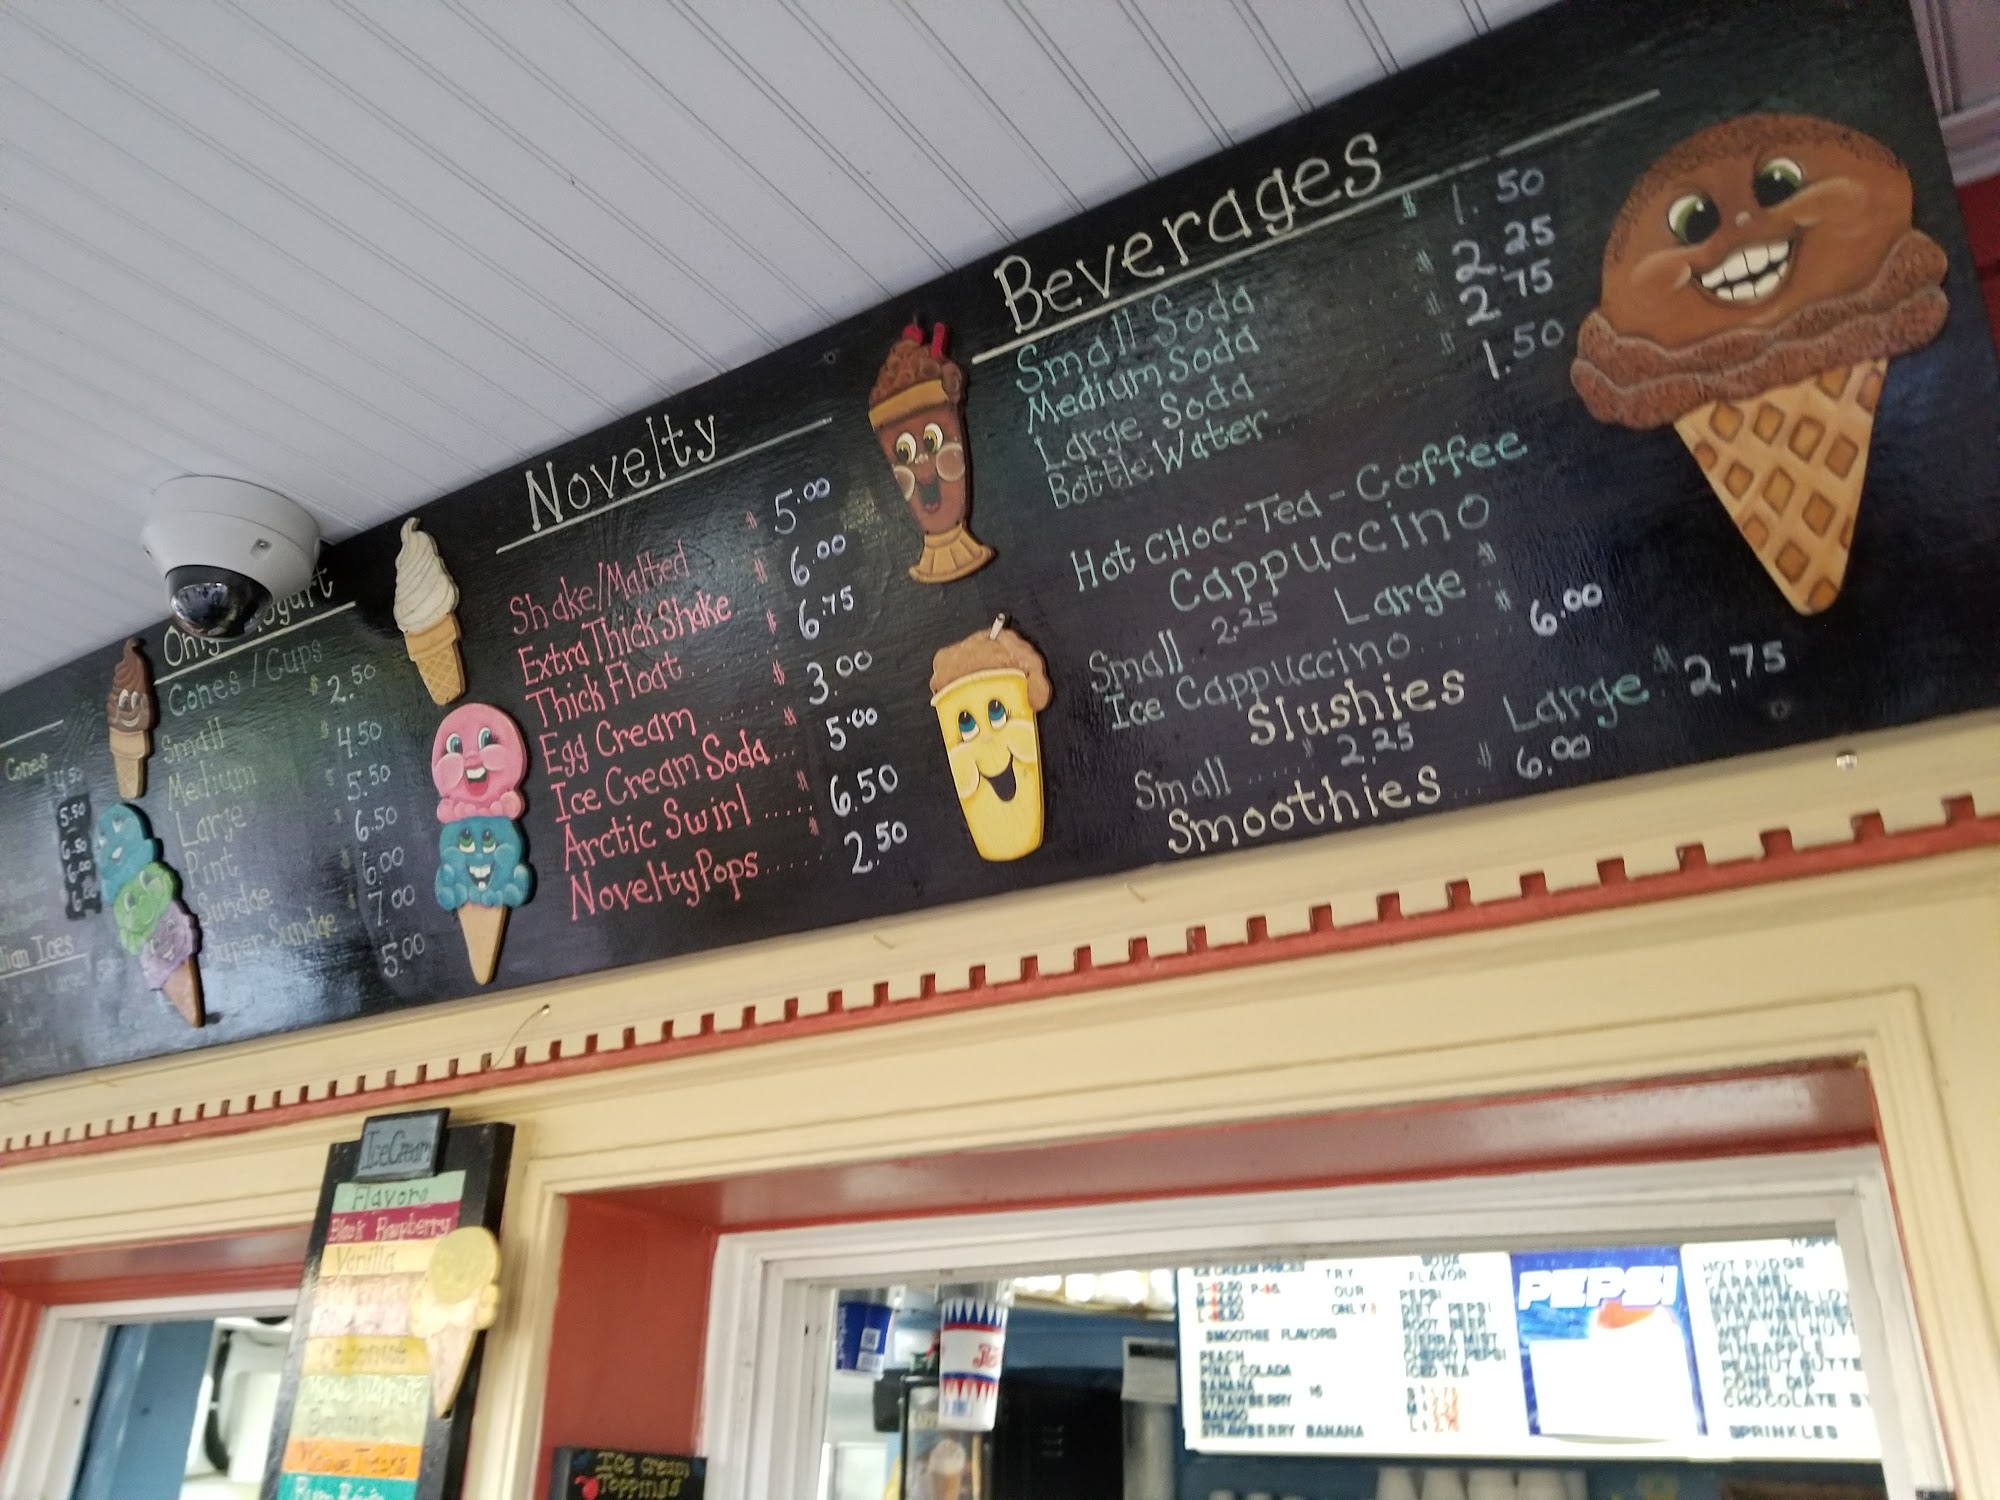 Cones
4.50
5.50
6.50
6.00
Ices
Large
Only
Cones / Cups
$ 2.50
Small
$ 4.50
Medium
$ 5.50
Large
6.50
Pint
6.00
Sundae
$ 7.00
Super Sundae
5.00
Novelty
Shake/Malted $ 5.00
Extra Thick Shake $ 6.00
Thick Float $ 6.75
Egg Cream $ 3.00
Ice Cream Soda $ 5.00
Arctic Swirl $ 6.50
Novelty Pops $ 2.50
Beverages
Small Soda $ 1.50
Medium Soda $ 2.25
Large Soda $ 2.75
Bottle Water $ 1.50
Hot CHoc-Tea-Coffee
Cappuccino
Small 2.25 Large $
Ice Cappuccino $ 6.00
Slushies
Small $ 2.25 Large $ 2.75
Smoothies $ 6.00
Ice Cream
Flavors
Black Raspberry
Vanilla
Ice Cream
Toppings
ICE CREAM PRICES
TRY
OUR
SMOOTHIE FLAVORS
PEACH
PINA COLADA
BANANA
STRAWBERRY
MANGO
STRAWBERRY BANANA
SODA
FLAVOR
PEPSI
DIET PEPSI
ROOT BEER
SIERRA MIST
CHERRY PEPSI
ICED TEA
PEPSI
HOT FUDGE
CARAMEL
MARSHMALLO
STRAWBERRIES
WET WALNUT
PINEAPPLE
PEANUT BUTTE
CONE DIP
CHOCOLATE
SPRINKLES